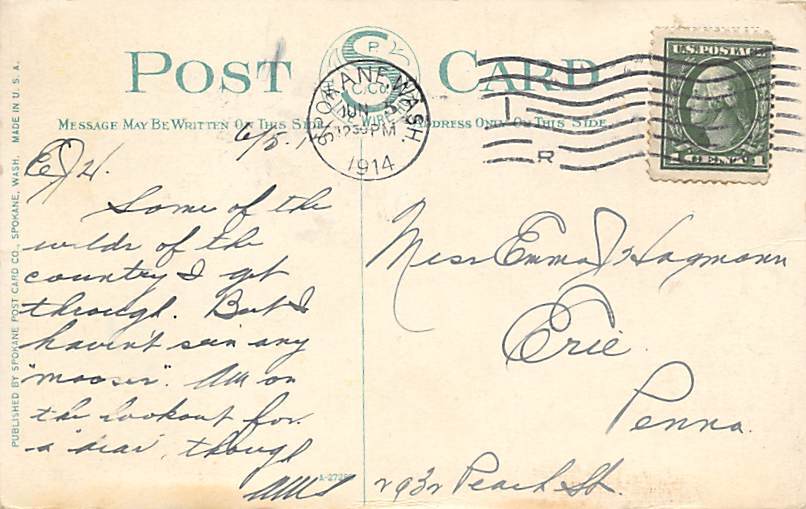 POST CARD
MESSAGE MAY BE WRITTEN ON THIS SIDE
ADDRESS ONLY ON THIS SIDE
SPOKANE, WASH.
JUN 5
12 30 PM
1914
R
U.S. POSTAGE
1 CENT 1
6/5.
E J H.
Some of the
wilds of the
country I get
through. But I
haven't seen any
"mooses". Am on
the lookout for
a "dear", though
Miss Emma J Hagmann
Erie
Penna.
2932 Peach St.
PUBLISHED BY SPOKANE POST CARD CO., SPOKANE, WASH. MADE IN U. S. A.